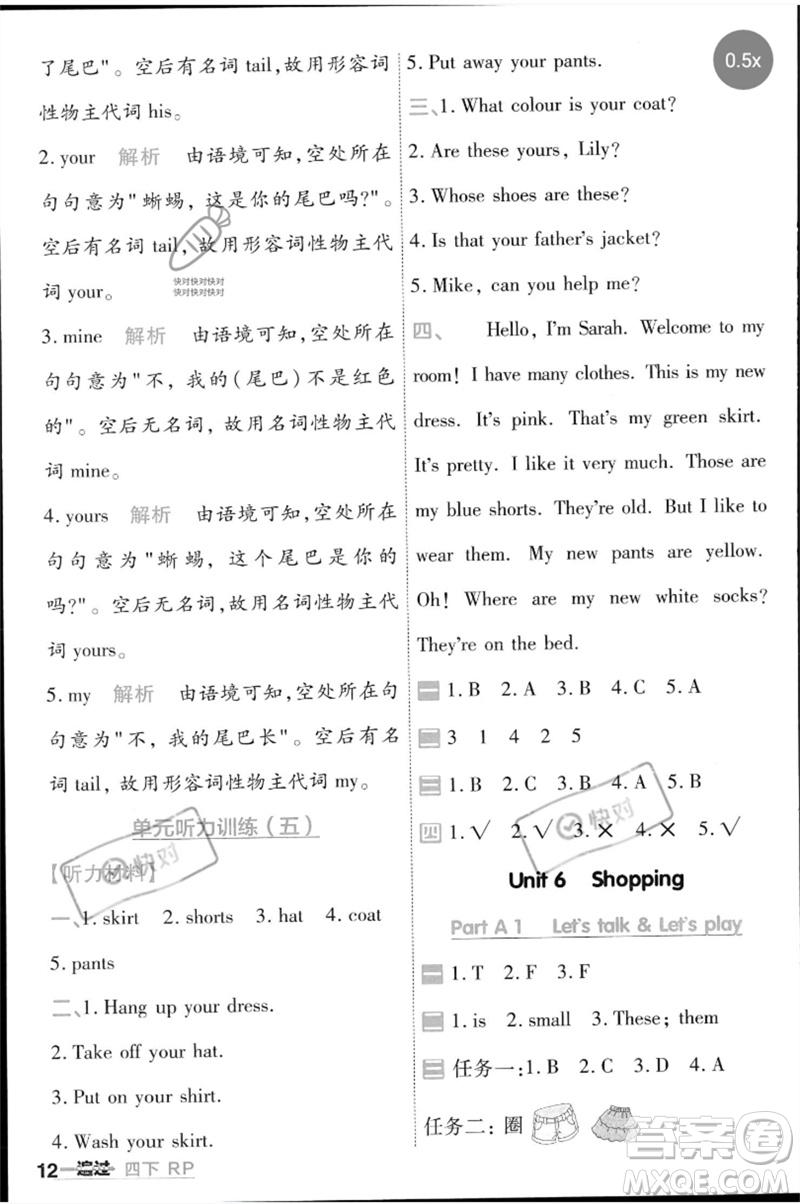 了尾巴"。空后有名词 tail,故用形容词
性物主代词 his。
2. your 解析 由语境可知,空处所在
句句意为"蜥蜴，这是你的尾巴吗?"。
空后有名词 tail,故用形容词性物主代
词 your。
快对快对快对
快对快对快对
3. mine 解析 由语境可知,空处所在
句句意为"不，我的(尾巴)不是红色
的"。空后无名词,故用名词性物主代
词 mine。
4. yours 解析 由语境可知,空处所在
句句意为"蜥蜴，这个尾巴是你的
吗?"。空后无名词,故用名词性物主代
词 yours。
5. my 解析 由语境可知,空处所在句
句意为"不，我的尾巴长"。空后有名
词 tail,故用形容词性物主代词 my。
单元听力训练(五)
【听力材料】
一、1. skirt 2. shorts 3. hat 4. coat
5. pants
二、1. Hang up your dress.
2. Take off your hat.
3. Put on your shirt.
4. Wash your skirt.
5. Put away your pants.
三、1. What colour is your coat?
2. Are these yours, Lily?
3. Whose shoes are these?
4. Is that your father's jacket?
5. Mike, can you help me?
四、 Hello, I'm Sarah. Welcome to my
room! I have many clothes. This is my new
dress. It's pink. That's my green skirt.
It's pretty. I like it very much. Those are
my blue shorts. They're old. But I like to
wear them. My new pants are yellow.
Oh! Where are my new white socks?
They're on the bed.
一 1. B 2. A 3. B 4. C 5. A
二 3 1 4 2 5
三 1. B 2. C 3. B 4. A 5. B
四 1. √ 2. √ 3. × 4. × 5. √
Unit 6 Shopping
Part A 1 Let's talk & Let's play
一 1. T 2. F 3. F
二 1. is 2. small 3. These; them
三 任务一:1. B 2. C 3. D 4. A
任务二:圈
12 一遍过 四下 RP
0.5x
快对
快对
答案圈
MXQE.COM